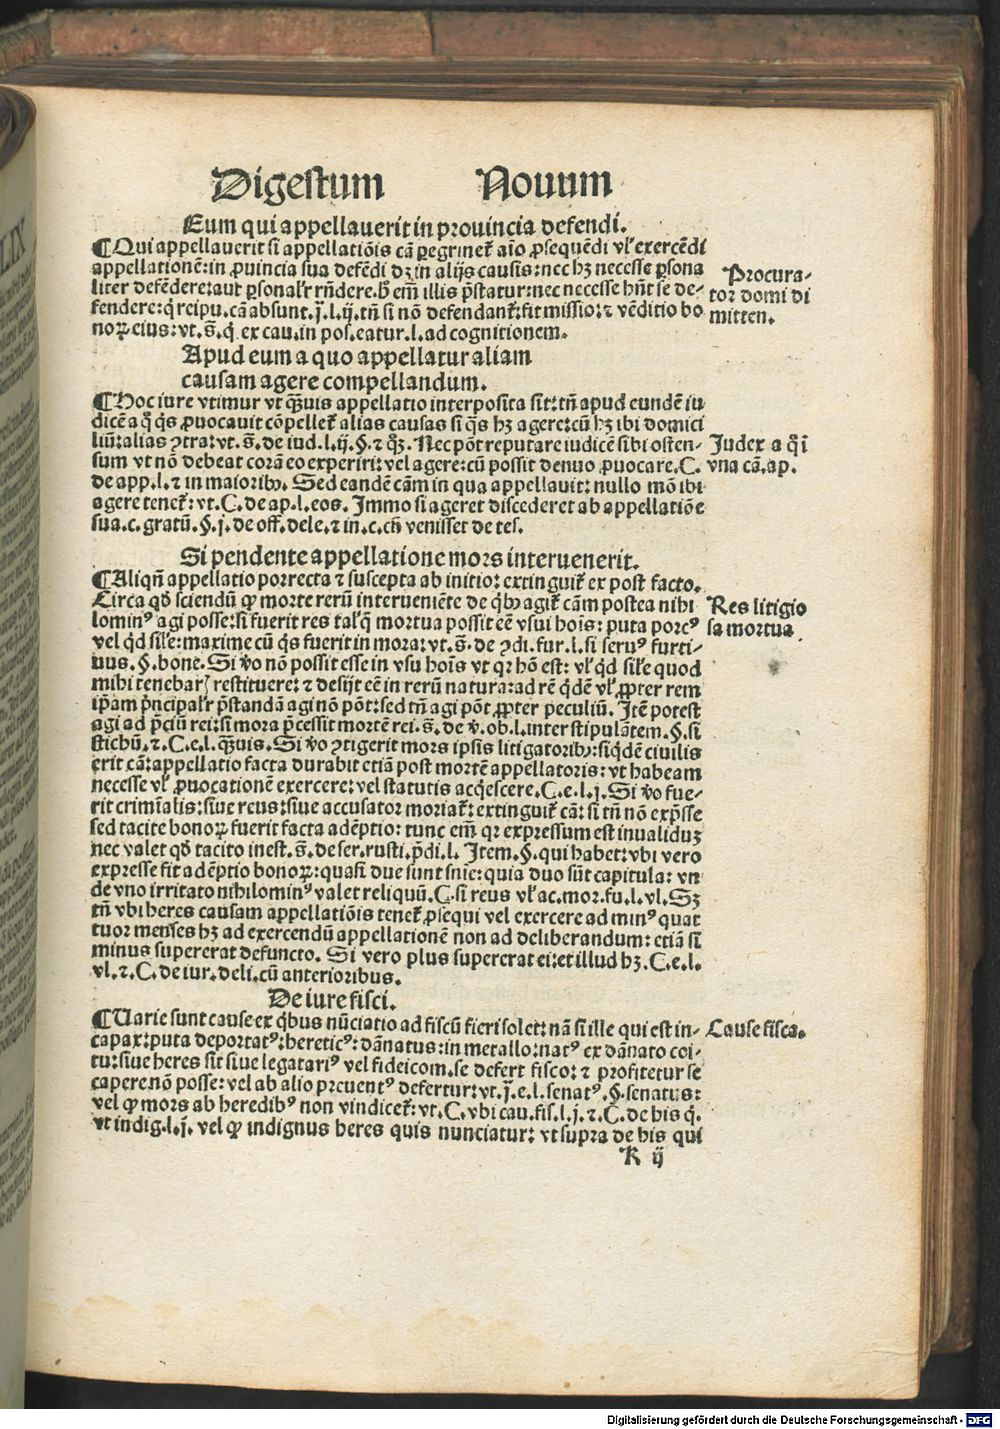 Digestum Nouum
Eum qui appellauerit in prouincia defendi.
¶Qui appellauerit si appellatiōis cā ꝑegrinet᷑ aīo ꝓsequēdi vl᷑ exercēdi
appellationē: in ꝓuincia sua defēdi dꝫ in alijs causis: nec hꝫ necesse ꝑsona
liter defēdere: aut ꝑsonal᷑r rn̄dere. b̄ em̄ illis p̄statur: nec necesse hn̄t se de-
fendere: q̄ reipu. cā absunt. j̄. l. ij. tn̄ si nō defendant᷑: fit missio: ⁊ vēditio bo
noꝝ eius: vt. s̄. q̄ ex cau. in pos. eatur. l. ad cognitionem.
Procura-
tor domi di
mitten.
Apud eum a quo appellatur aliam
causam agere compellandum.
¶Hoc iure vtimur vt q̄uis appellatio interposita sit: tn̄ apud eundē iu
dicē a q̄ q̇s ꝓuocauit cōpellet᷑ alias causas si q̇s hꝫ agere: cū hꝫ ibi domici
liū: alias ꝯtra: vt. s̄. de iud. l. ij. §. ⁊ q̄ꝫ. Nec pōt reputare iudicē sibi osten-
sum vt nō debeat corā eo experiri: vel agere: cū possit denuo ꝓuocare. C.
de app. l. ⁊ in maioribꝰ. Sed eandē cām in qua appellauit: nullo mō ibi
agere tenet᷑: vt. C. de ap. l. eos. Immo si ageret discederet ab appellatiōe
sua. c. gratū. §. j. de off. dele. ⁊ in. c. cū venisset de tes.
Judex a q̄ ī
vna cā. ap.
Si pendente appellatione mors interuenerit.
¶Aliqn̄ appellatio porrecta ⁊ suscepta ab initio: extinguit᷑ ex post facto.
Circa qd̄ sciendū ꝙ morte rerū interueniēte de q̇bꝰ agit᷑ cām postea nihi
lominꝰ agi posse: si fuerit res talꝭ q̄ mortua possit eē vsui hoīs: puta porcꝰ
vel q̇d sil᷑e: maxime cū q̇s fuerit in mora: vt. s̄. de ꝯdi. fur. l. si seruꝰ furti-
uus. §. bone. Si v̄o nō possit esse in vsu hoīs vt qr hō est: vl᷑ q̇d sil᷑e quod
mihi tenebarꝭ restituere: ⁊ desijt eē in rerū natura: ad rē q̇dē vl᷑ ꝓpter rem
ip̄am p̄ncipal᷑r p̄standā agi nō pōt: sed tn̄ agi pōt ꝓpter peculiū. Itē potest
agi ad p̄ciū rei: si mora p̄cessit mortē rei. s̄. de v̄. ob. l. inter stipulātem. §. si
stichū. ⁊. C. e. l. q̄uis. Si v̄o ꝯtigerit mors ipsis litigatoribꝰ: siq̇dē ciuilis
erit cā: appellatio facta durabit etiā post mortē appellatoris: vt habeam
necesse vl᷑ ꝓuocationē exercere: vel statutis acq̇escere. C. e. l. j. Si v̄o fue-
rit crimīalis: siue reus: siue accusator moriat᷑: extinguit᷑ cā: si tn̄ nō exp̄sse
sed tacite bonoꝝ fuerit facta adēptio: tunc em̄ qr expressum est inualidum
nec valet qd̄ tacito inest. s̄. de ser. rusti. p̄di. l. Item. §. qui habet: vbi vero
expresse fit adēptio bonoꝝ: quasi due sunt sn̄ie: quia duo sūt capitula: vn
de vno irritato nihilominꝰ valet reliquū. C. si reus vl᷑ ac. mor. fu. l. vl. Sꝫ
tn̄ vbi heres causam appellatiōis tenet᷑ ꝓsequi vel exercere ad minꝰ quat
tuor menses hꝫ ad exercendū appellationē non ad deliberandum: etiā si
minus supererat defuncto. Si vero plus supererat ei: et illud hꝫ. C. e. l.
vl. ⁊. C. de iur. deli. cū anterioribus.
Res litigio
sa mortua.
De iure fisci.
¶Varie sunt cause ex q̇bus nūciatio ad fiscū fieri solet: nā si ille qui est in-
capax: puta deportatꝰ: hereticꝰ: dānatus: in metallo: natꝰ ex dānato coi-
tu: siue heres sit siue legatariꝰ vel fideicom. se defert fisco: ⁊ profitetur se
capere nō posse: vel ab alio preuentꝰ defertur: vt. j̄. e. l. senatꝰ. §. senatus:
vel ꝙ mors ab heredibꝰ non vindicet᷑: vt. C. vbi cau. fis. l. j. ⁊. C. de his q̇.
vt indig. l. j. vel ꝙ indignus heres quis nunciatur: vt supra de his qui
Cause fisca.
K ij
Digitalisierung gefördert durch die Deutsche Forschungsgemeinschaft - DFG